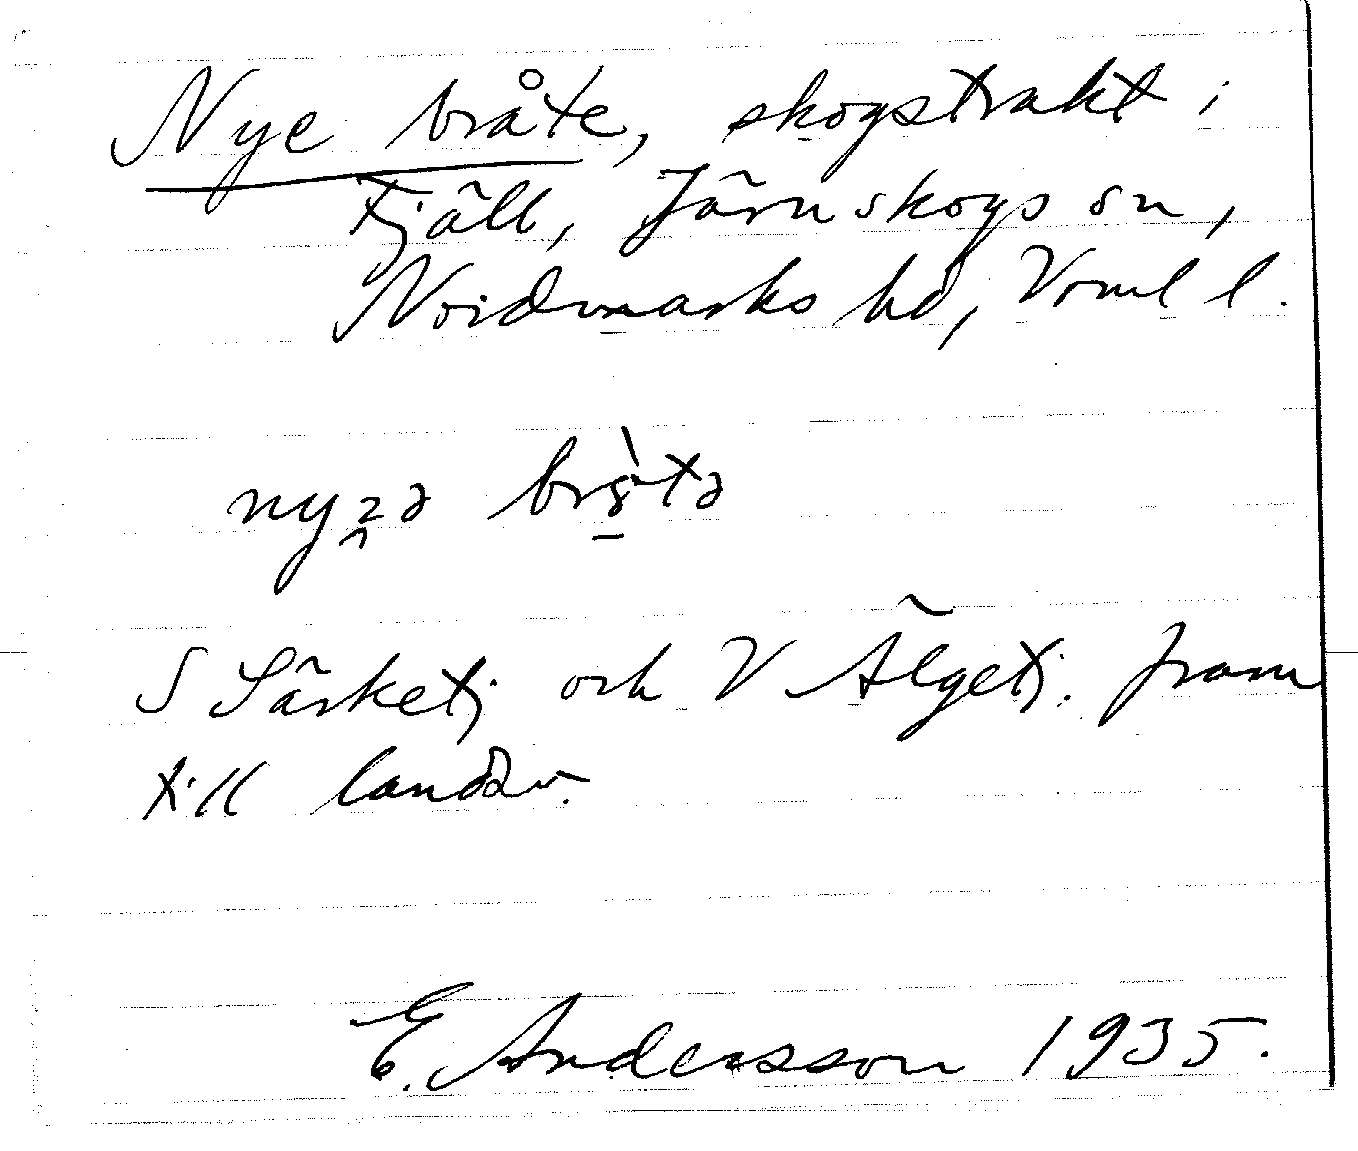 Nye bråte, skogstrakt i
Fjäll, Järnskogs sn,
Nordmarks hd, Vrml l.
S Särketj och V Älgetj. fram
till landsv.
E. Andersson 1935.